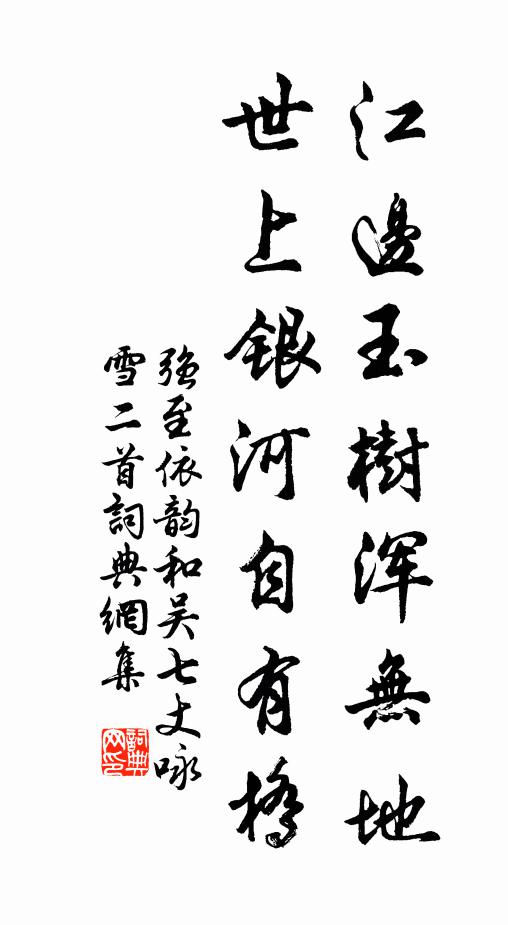 江邊玉樹浑無地
世上銀河自有橋
强至依韵和吴七丈咏
雪二首詞典網集
詞典
网印